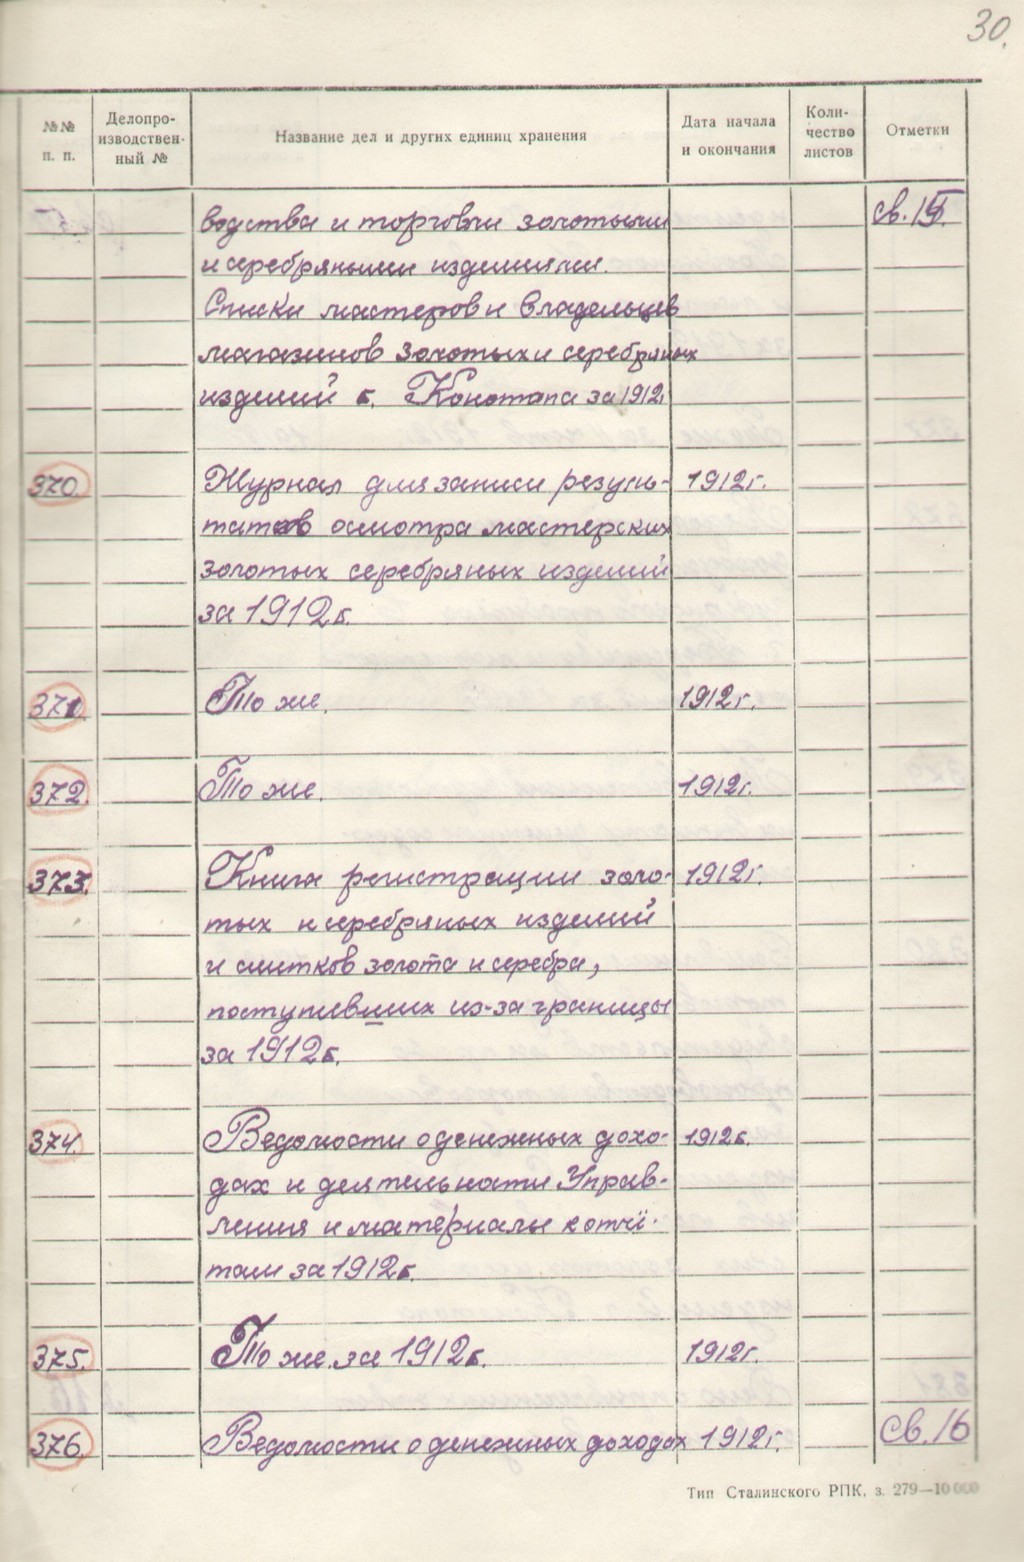 30.
№№ п. п.
Делопро-
изводствен-
ный №
Название дел и других единиц хранения
Дата начала
и окончания
Коли-
чество
листов
Отметки
водства и торговли золотыми св. 15.
и серебряными изделиями.
Списки мастеров и владельцев
магазинов золотых и серебряных
изделий г. Конотопа за 1912
370. Журнал для записи резуль- 1912г.
татов осмотра мастерских
золотых серебряных изделий
за 1912г.
371. То же. 1912г.
372. То же. 1912г.
373. Книга регистрации золо- 1912г.
тых и серебряных изделий
и слитков золота и серебра,
поступивших из-за границы
за 1912г.
374. Ведомости о денежных дохо- 1912г.
дах и деятельности Управ-
ления и материалы к отчё-
там за 1912г.
375. То же за 1912г. 1912г.
376. Ведомости о денежных доходах 1912г. св. 16
Тип Сталинского РПК, з. 279—10 000